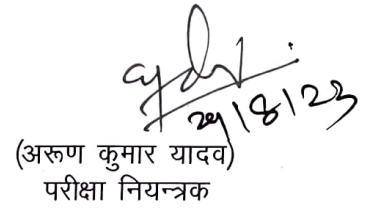 29/8/23
(अरूण कुमार यादव)
परीक्षा नियन्त्रक